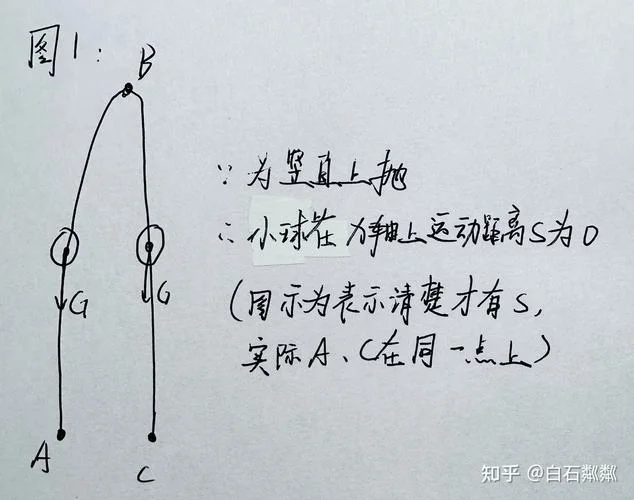 图1:
B
∵为竖直上抛
∴小球在 轴上运动距离S为0
G
G
(图示为表示清楚才有S,
实际A、C在同一点上)
A
C
知乎 @白石粼粼